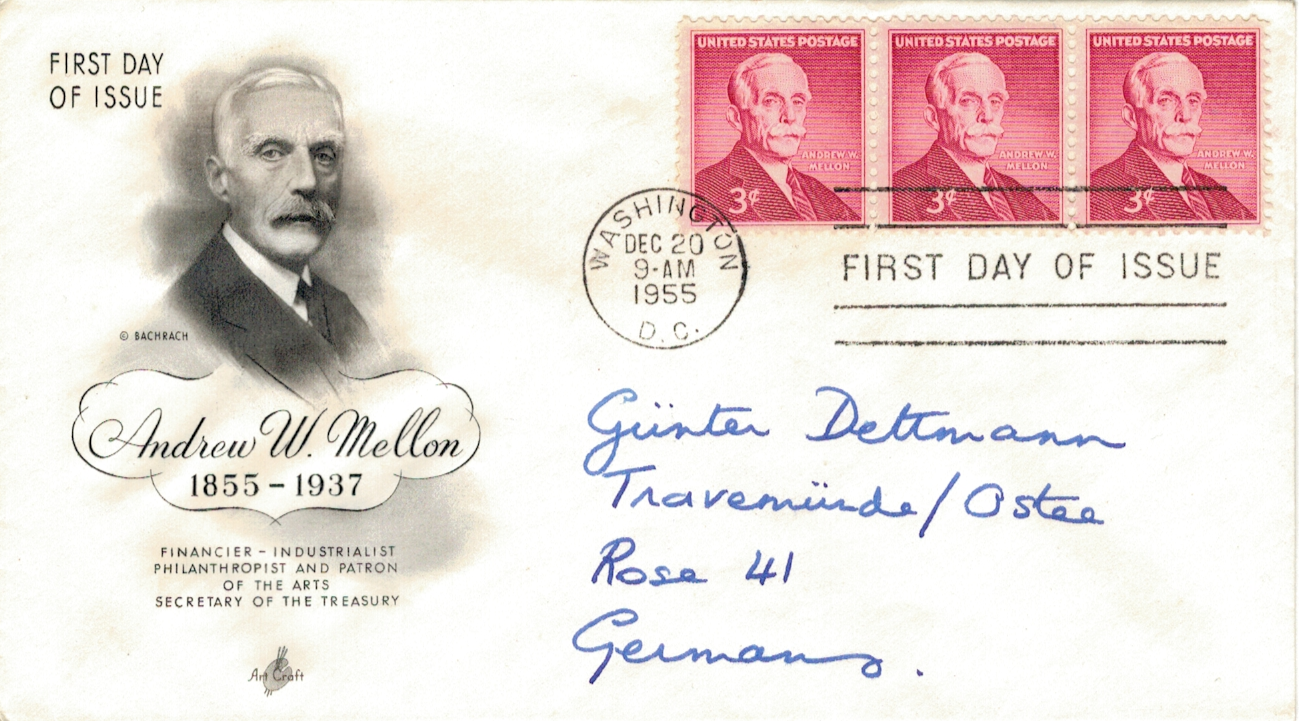 FIRST DAY
OF ISSUE
© BACHRACH
Andrew W. Mellon
1855 – 1937
FINANCIER – INDUSTRIALIST
PHILANTHROPIST AND PATRON
OF THE ARTS
SECRETARY OF THE TREASURY
Art Craft
UNITED STATES POSTAGE
ANDREW W.
MELLON
3¢
UNITED STATES POSTAGE
ANDREW W.
MELLON
3¢
UNITED STATES POSTAGE
ANDREW W.
MELLON
3¢
WASHINGTON
DEC 20
9-AM
1955
D.C.
FIRST DAY OF ISSUE
Günter Dettmann
Travemünde/Ostee
Rose 41
Germany.